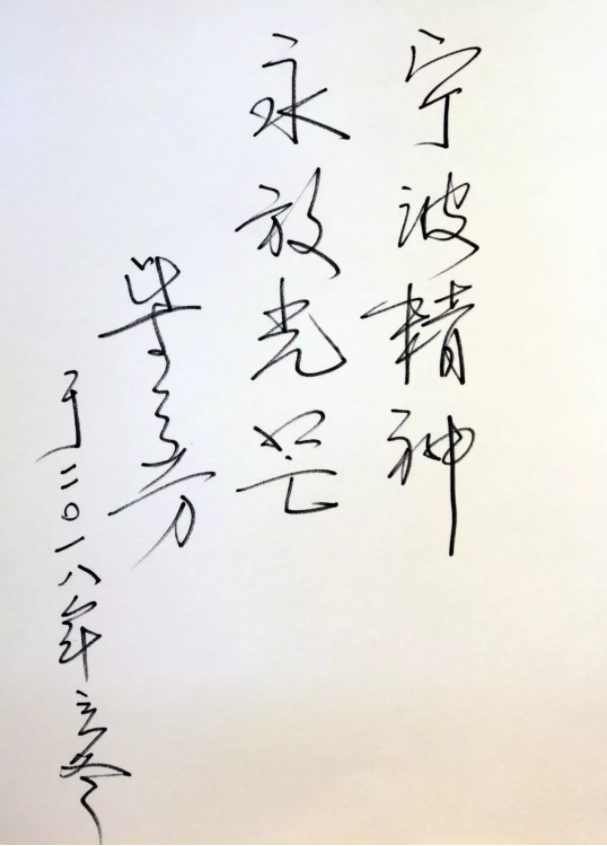 宁波精神
永放光芒
于二〇一八年立冬